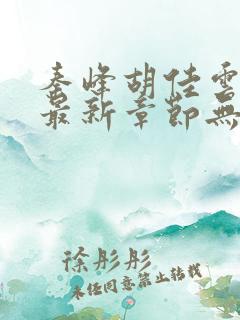 秦峰胡佳雲
最新章節無
徐彤彤
未经同意禁止转载